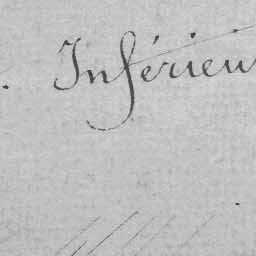 . Inférieu